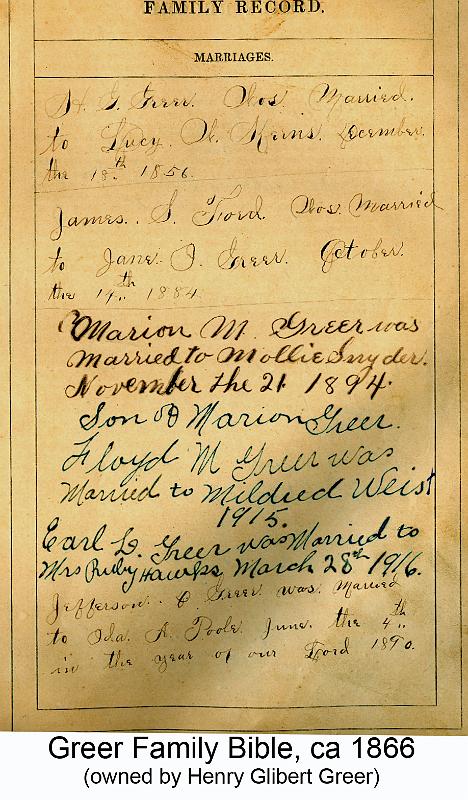 FAMILY RECORD.
MARRIAGES.
H. G. Greer. Was Married.
to Lucy. W. Kerns. December.
the 18.th 1856.
James. S. Ford. Was. Married
to Jane. I. Greer. October.
the 14.th 1884.
Marion M. Greer was
Married to Mollie Snyder.
November the 21 1894.
Son of Marion Greer.
Floyd M Greer was
Married to Mildred Weist
1915.
Earl L. Greer was Married to
Mrs Ruby Hawks March 28th 1916.
Jefferson. C. Greer was. Married
to Ida. A. Poole. June. the 4.th
in the year of our Lord 1890.
Greer Family Bible, ca 1866
(owned by Henry Glibert Greer)